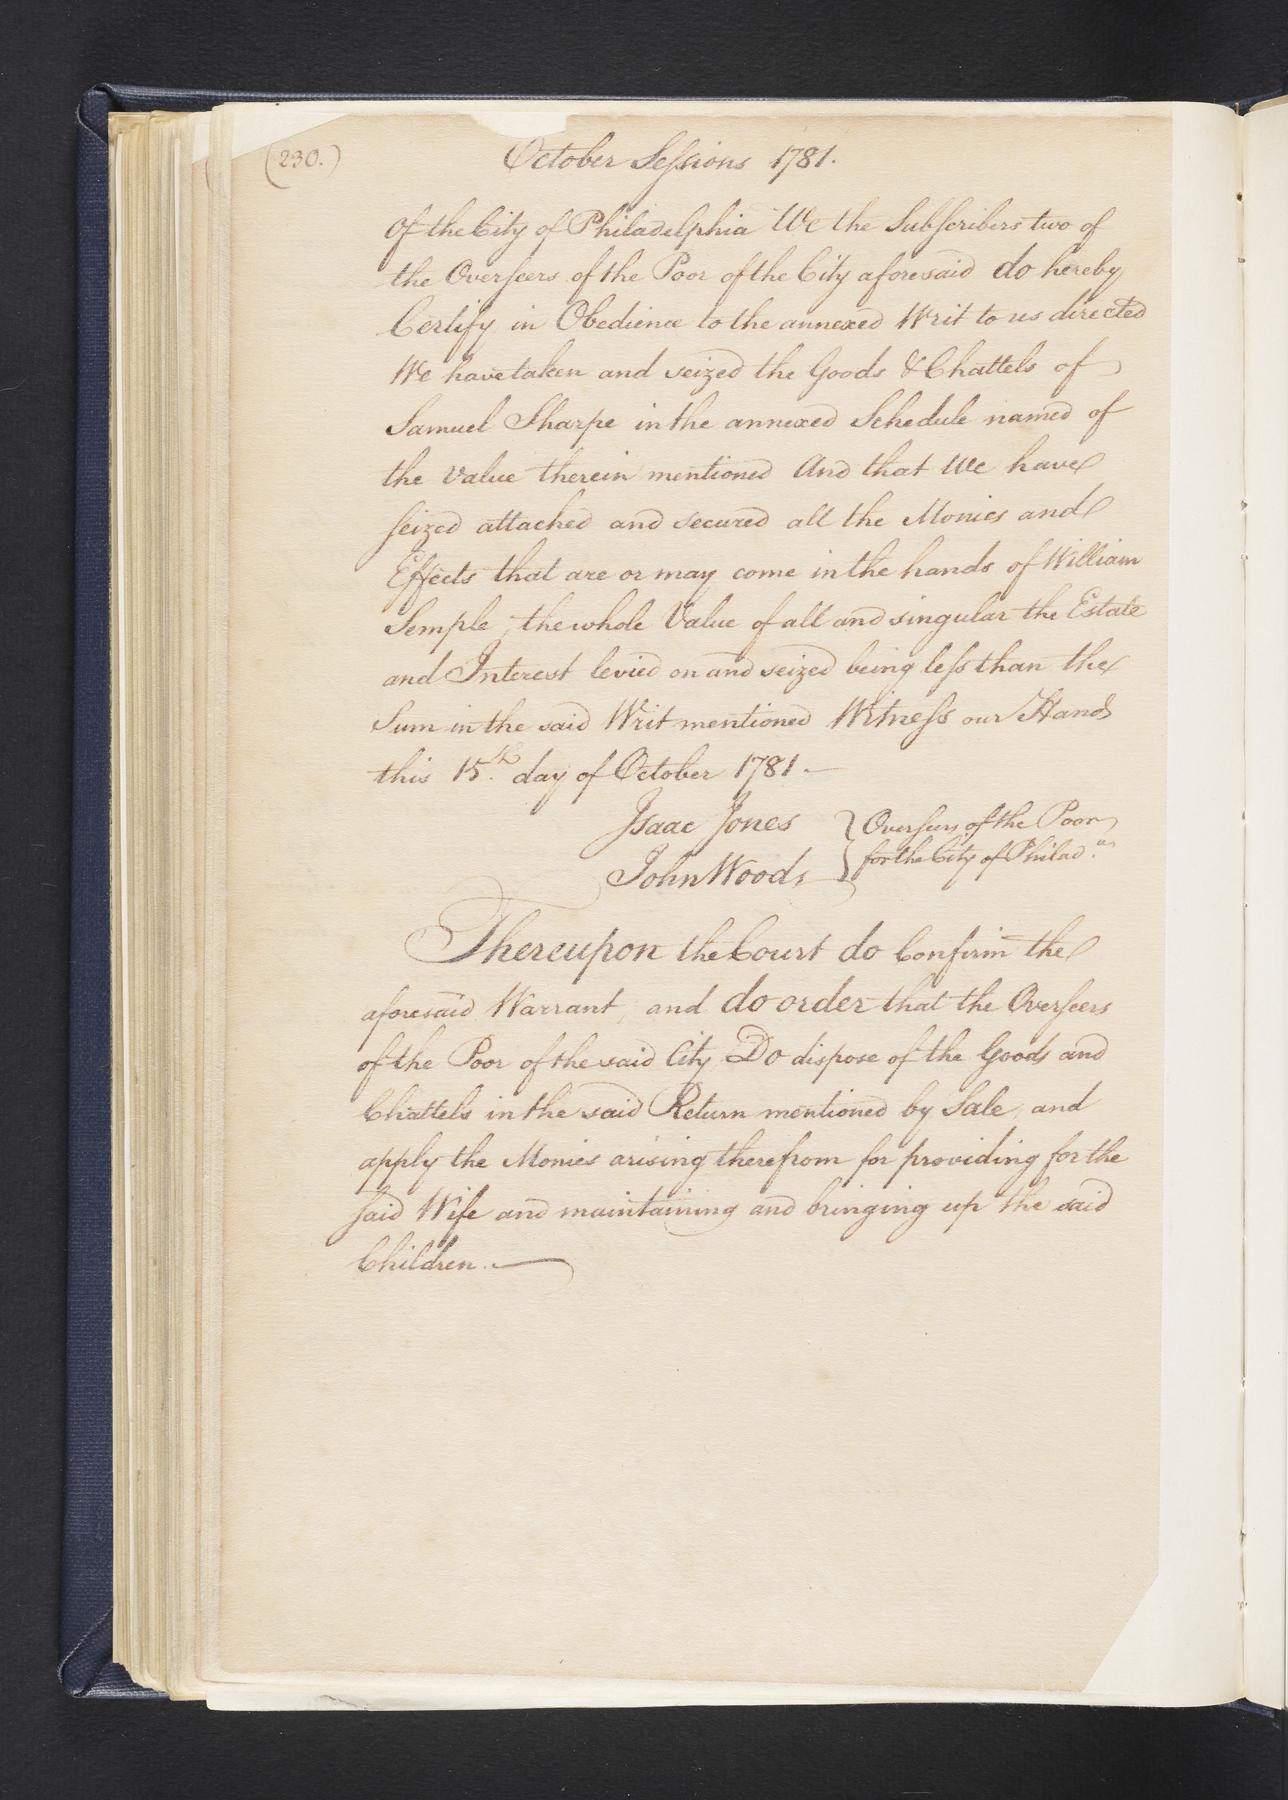 (230.)
October Sessions 1781.
Of the City of Philadelphia We the Subscribers two of
the Overseers of the Poor of the City aforesaid do hereby
Certify in Obedience to the annexed Writ to us directed
We have taken and seized the Goods & Chattels of
Samuel Sharpe in the annexed Schedule named of
the Value therein mentioned And that We have
seized attached and secured all the Monies and
Effects that are or may come in the hands of William
Semple, the whole Value of all and singular the Estate
and Interest levied on and seized being less than the
Sum in the said Writ mentioned Witness our Hands
this 15.th day of October 1781.—
Isaac Jones } Overseers of the Poor
John Woods } for the City of Philad.a
Thereupon the Court do Confirm the
aforesaid Warrant, and do order that the Overseers
of the Poor of the said City Do dispose of the Goods and
Chattels in the said Return mentioned by Sale, and
apply the Monies arising therefrom for providing for the
said Wife and maintaining and bringing up the said
Children.—